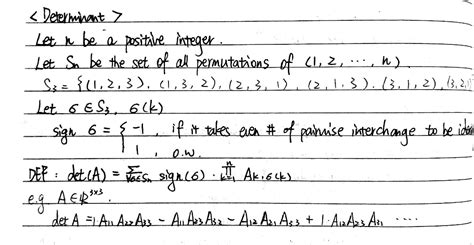 < Determinant >
Let n be a positive integer.
Let Sn be the set of all permutations of (1, 2, ⋯, n)
S₃ = {(1, 2, 3), (1, 3, 2), (2, 3, 1), (2, 1, 3), (3, 1, 2), (3, 2, 1)
Let σ ∈ S₃, σ(k)
sign σ = { -1, if it takes even # of pairwise interchange to be iden
1, o.w.
DEF: det(A) = Σ_{σ∈Sn} sign(σ) · ∏_{k=1}^{n} A_{k,σ(k)}
e.g A ∈ ℝ^{3×3}
det A = 1·A₁₁A₂₂A₃₃ - A₁₁A₂₃A₃₂ - A₁₂A₂₁A₃₃ + 1·A₁₂A₂₃A₃₁ ⋯